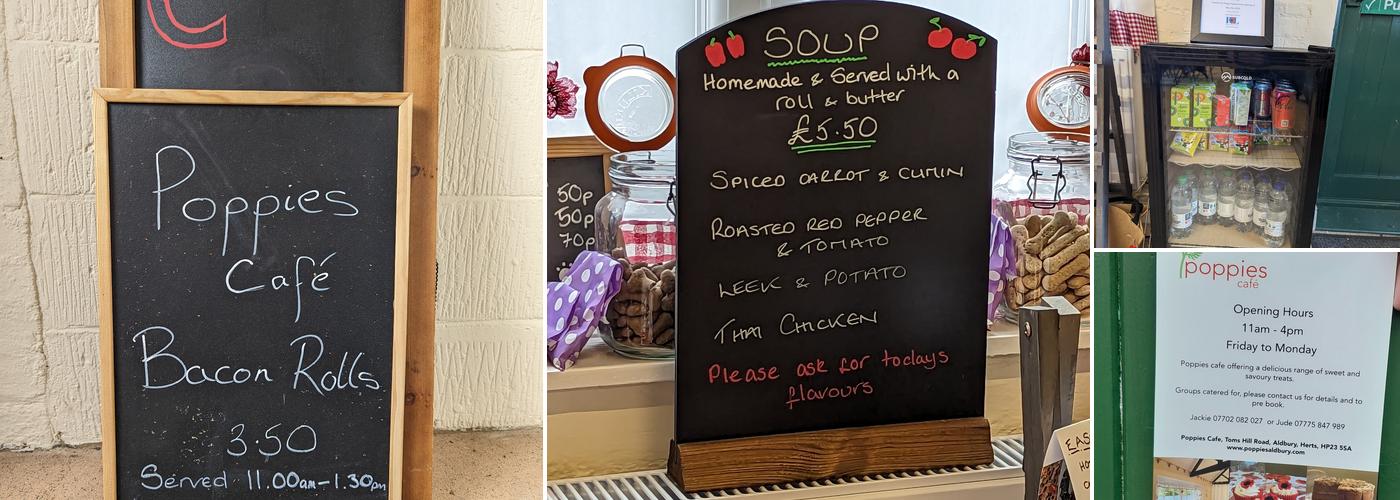 Poppies
Café
Bacon Rolls
3.50
Served 11.00am-1.30pm
50p
50p
70p
SOUP
Homemade & Served with a
roll & butter
£5.50
SPICED CARROT & CUMIN
ROASTED RED PEPPER
& TOMATO
LEEK & POTATO
THAI CHICKEN
Please ask for todays
flavours
SUBCOLD
poppies
café
Opening Hours
11am - 4pm
Friday to Monday
Poppies cafe offering a delicious range of sweet and
savoury treats.
Groups catered for, please contact us for details and to
pre book.
Jackie 07702 082 027 or Jude 07775 847 989
Poppies Cafe, Toms Hill Road, Aldbury, Herts, HP23 5SA
www.poppiesaldbury.com